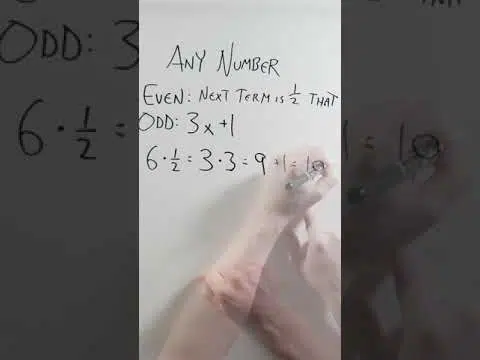 ANY NUMBER
EVEN: NEXT TERM IS 1/2 THAT
ODD: 3x+1
6 · 1/2 = 3 · 3 = 9 + 1 = 10
ODD: 3
6 · 1/2 =
1 = 10